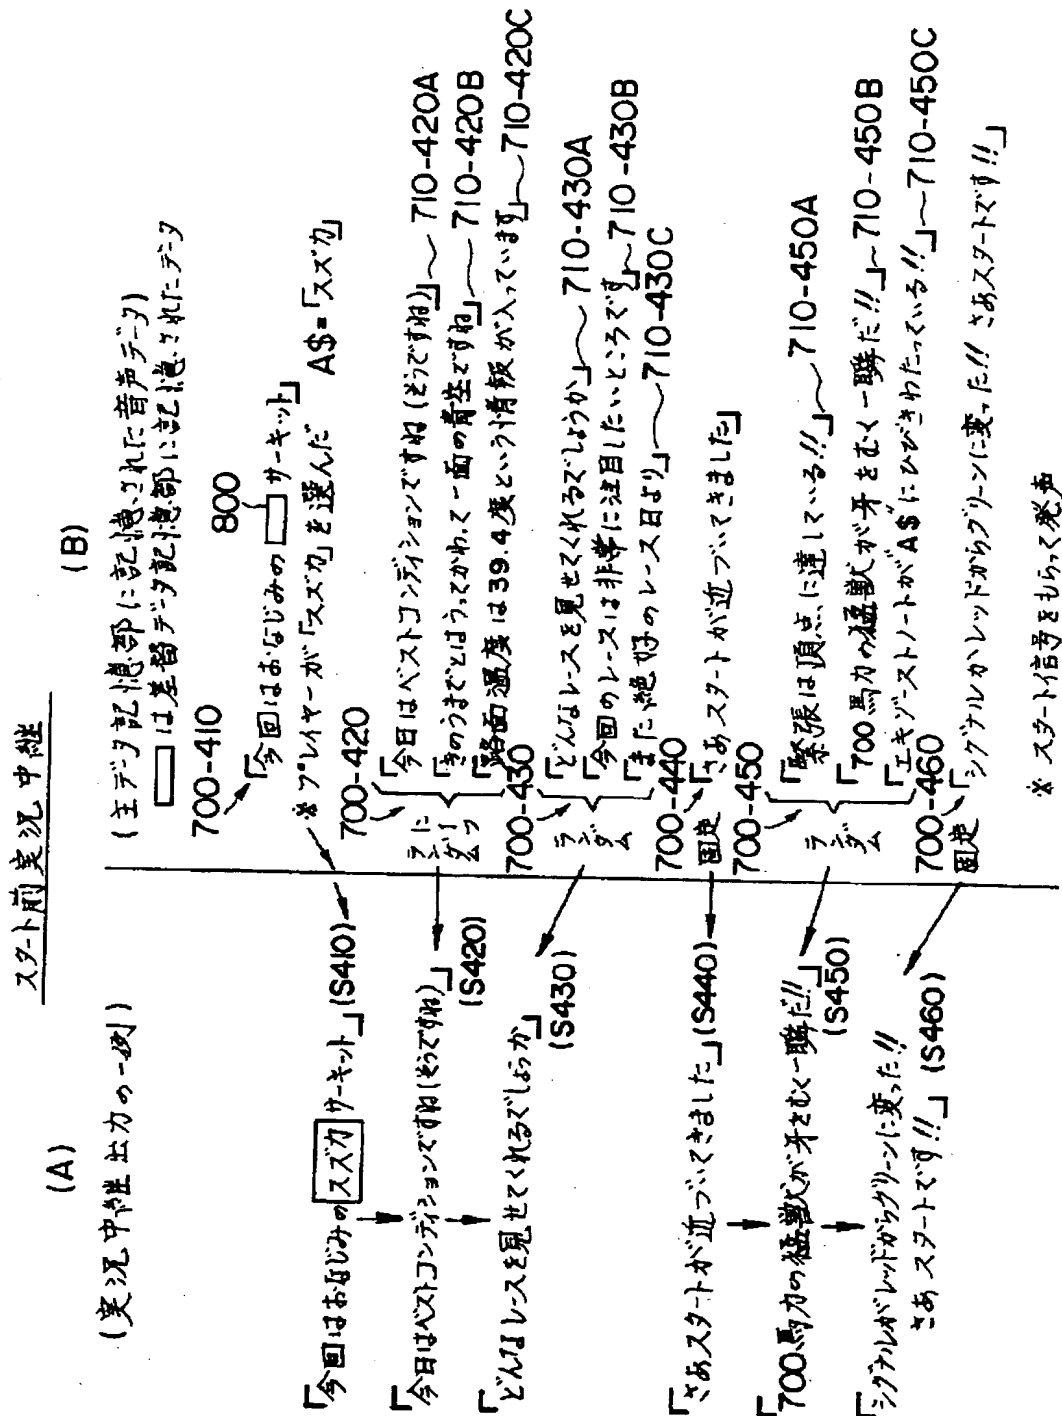 スタート前実況中継
(A)
(実況中継出力の一例)
「今回はおなじみの スズカ サーキット」(S410)
「今日はベストコンディションですね(そうですね)」
(S420)
「どんなレースを見せてくれるでしょうか」
(S430)
「さあスタートが近づいてきました」(S440)
「700馬力の猛獣が牙をむく一瞬だ!!」
(S450)
「シグナルがレッドからグリーンに変った!!
さあスタートです!!」(S460)
(B)
(主データ記憶部に記憶された音声データ)
は基督データ記憶部に記憶されたデータ
700-410
800
「今回はおなじみの サーキット」
※プレイヤーが「スズカ」を選んだ A$=「スズカ」
700-420
ランダムに
「今日はベストコンディションですね(そうですね)」~710-420A
「きのうまでとはうってかわって一面の青空ですね」~710-420B
「路面温度は39.4度という情報が入っています」~710-420C
700-430
ランダム
「どんなレースを見せてくれるでしょうか」~710-430A
「今回のレースは非常に注目したいところです」~710-430B
「また絶好のレース日より」~710-430C
700-440
固定
「さあスタートが近づいてきました」
700-450
ランダム
「緊張は頂点に達している!!」~710-450A
「700馬力の猛獣が牙をむく一瞬だ!!」~710-450B
「エキゾーストノートが"A$"にひびきわたっている!!」~710-450C
700-460
固定
「シグナルがレッドからグリーンに変った!! さあスタートです!!」
※スタート信号をもらって発声